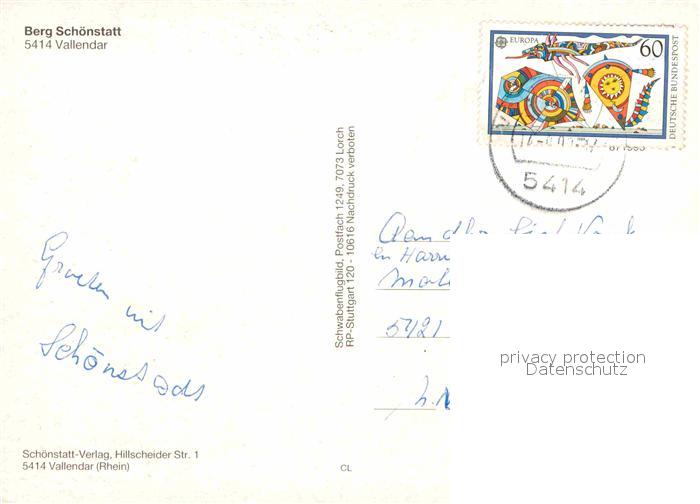 Berg Schönstatt
5414 Vallendar
EUROPA
60
DEUTSCHE BUNDESPOST
5414
Schwabenflugbild, Postfach 1249, 7073 Lorch
RP-Stuttgart 120 - 10616 Nachdruck verboten
Groeten uit
Schönstadt
en
5421
privacy protection
Datenschutz
Schönstatt-Verlag, Hillscheider Str. 1
5414 Vallendar (Rhein)
CL